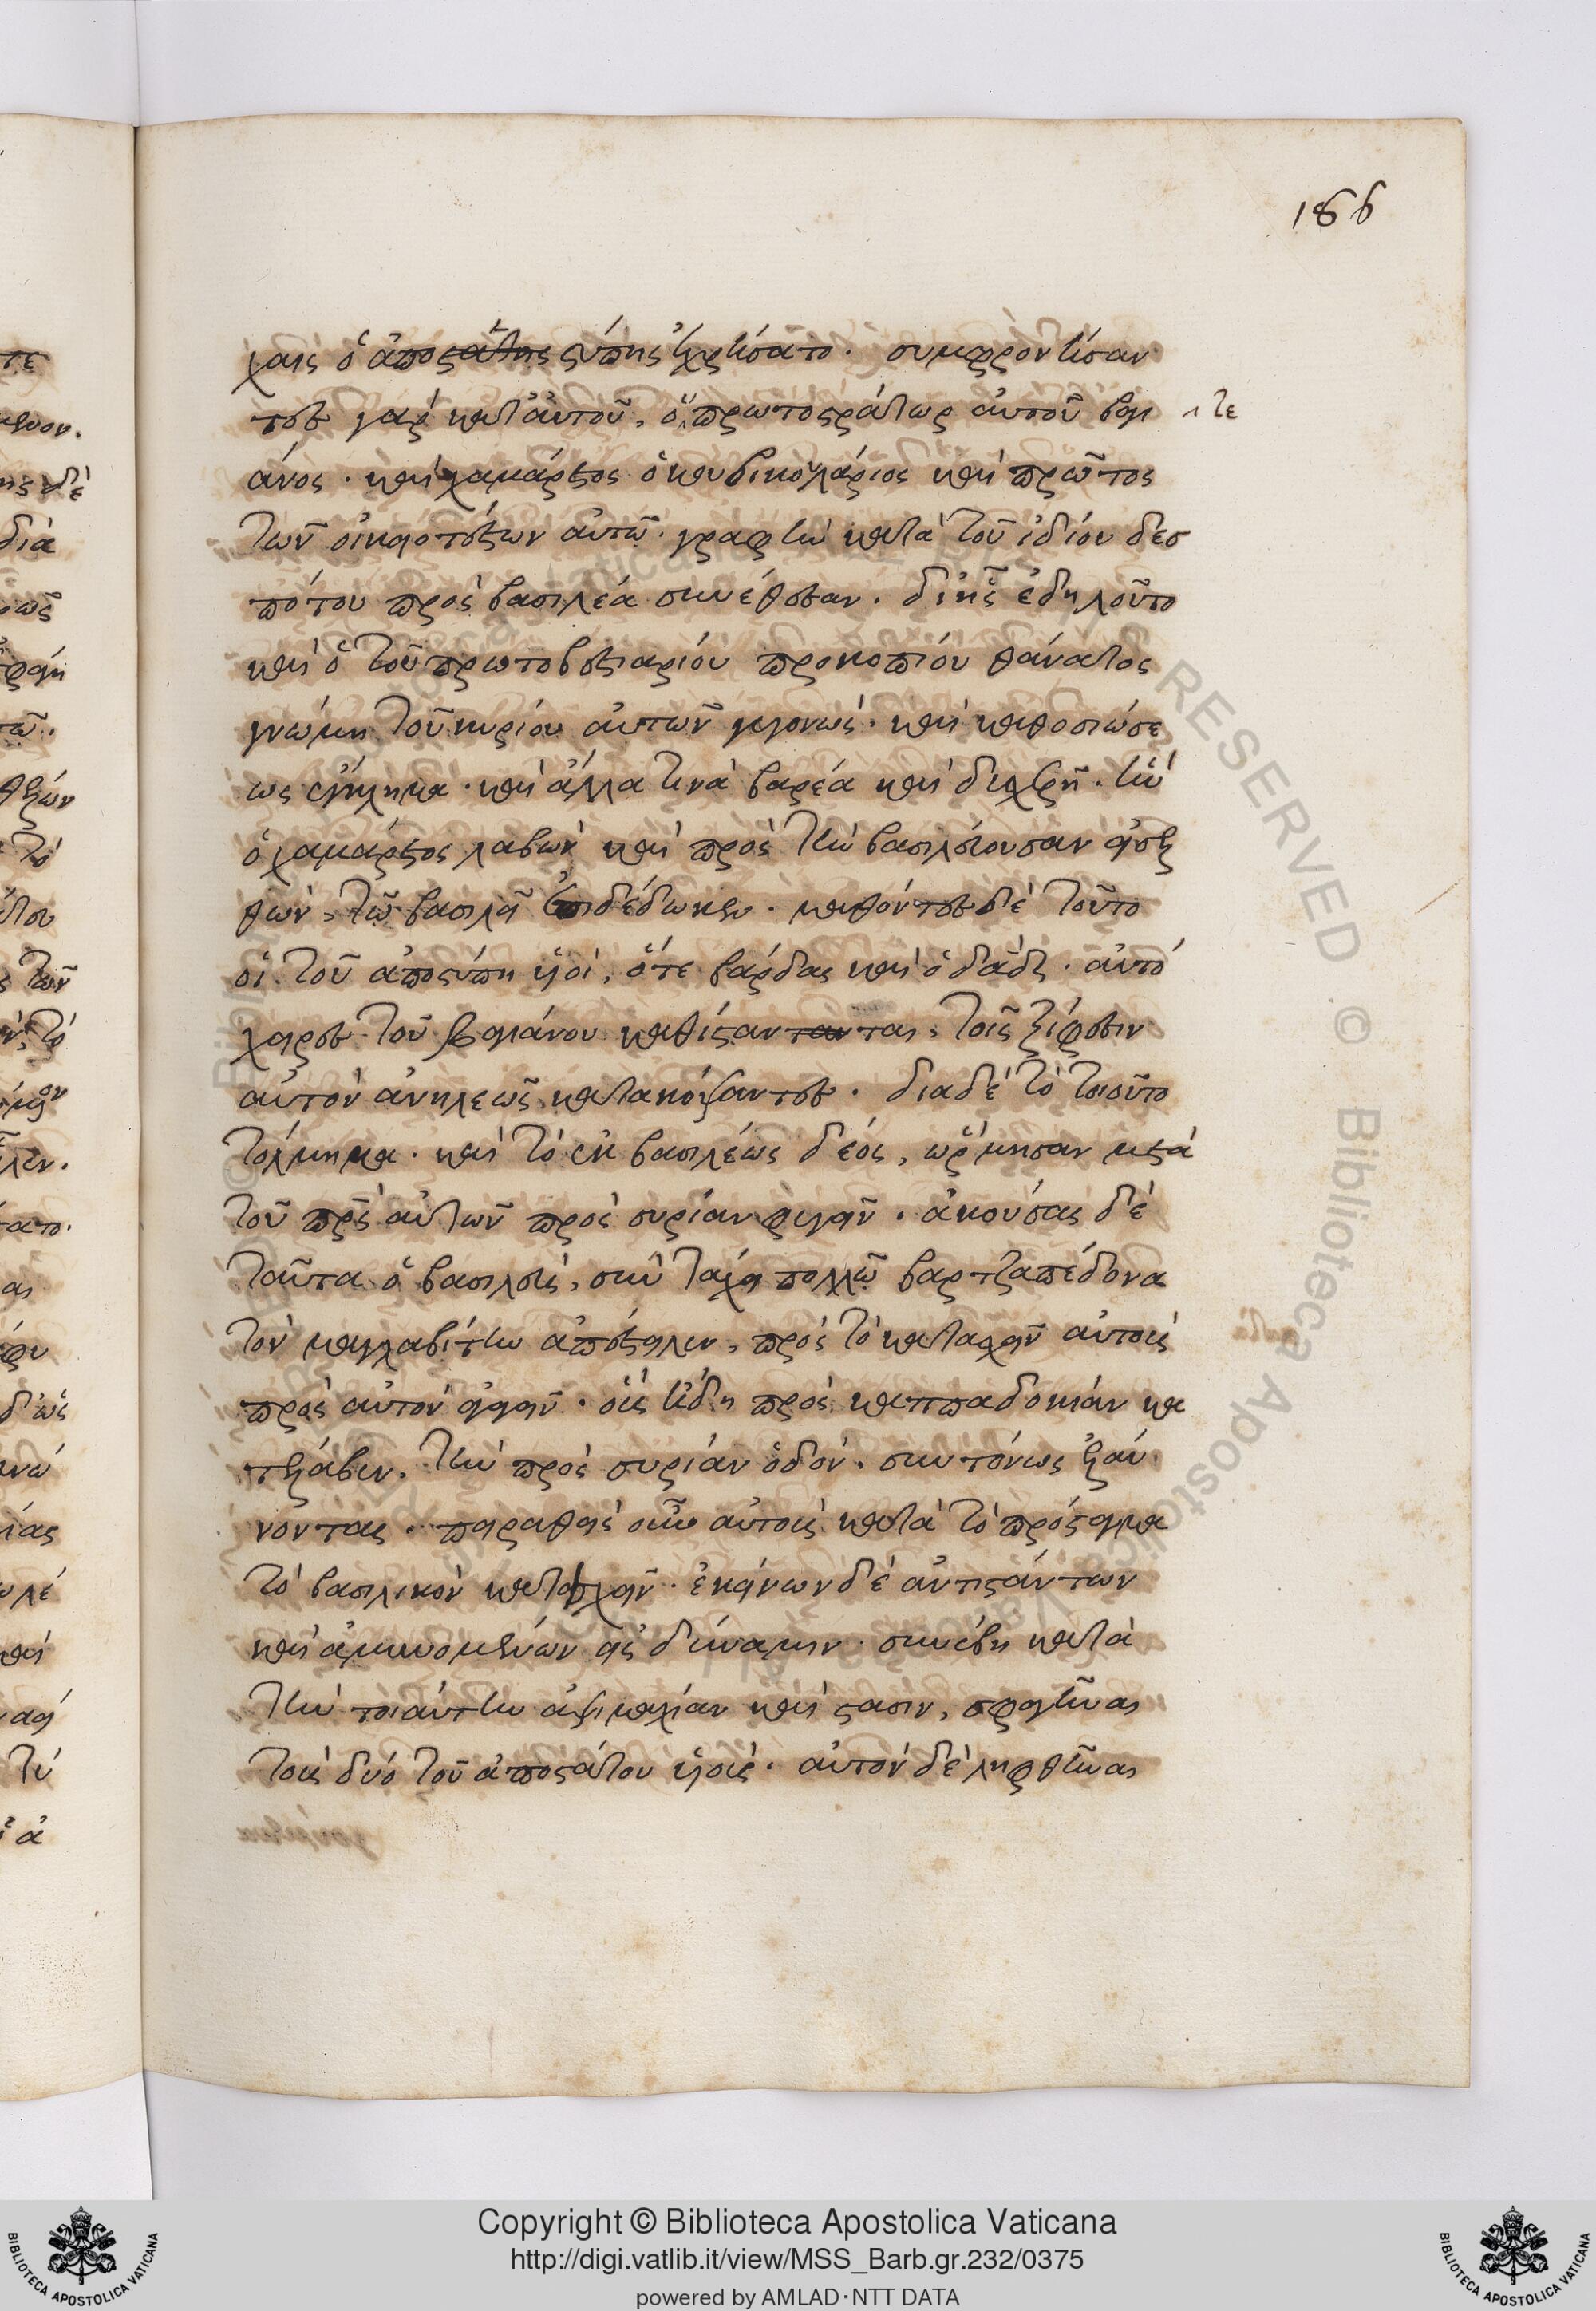 186
χαις ὁ ἀποστάτης στύπης ἐχρήσατο. συμφρονήσαν
τες γὰρ κατ' αὐτοῦ, ὅ πρωτοστράτωρ αὐτοῦ βαι
τε
άνος. καὶ χαμάρετος ὁ κουβικουλάριος καὶ πρῶτος
τῶν οἰκειοτέρων αὐτῶ. γραφὴν κατὰ τοῦ ἰδίου δεσ
πότου πρὸς βασιλέα συνέθεσαν. δι' ἧς ἐδηλοῦτο
καὶ ὁ τοῦ πρωτοβεστιαρίου προκοπίου θάνατος
γνώμη τοῦ κυρίου αὐτῶν γεγονώς. καὶ καθοσιώσε
ως ἔγκλημα. καὶ ἄλλα τινὰ βαρέα καὶ δεινχερῆ. ἣν
ὁ χαμάρετος λαβὼν καὶ πρὸς τὴν βασιλεύουσαν εἰσελ
θών, τῷ βασιλεῖ ἐπιδέδωκεν. μαθόντες δὲ τοῦτο
οἱ τοῦ ἀποστύπη υἱοί, ὅ τε βάρδας καὶ ὁ δαδὲ. αὐτό
χειρες τοῦ βαιάνου καθίστανται, τοῖς ξίφεσιν
αὐτὸν ἀνηλεῶς κατακόψαντες. διὰ δὲ τὸ τοιοῦτο
τόλμημα. καὶ τὸ ἐκ βασιλέως δέος, ὥρμησαν μετὰ
τοῦ πρς αὐτῶν πρὸς συρίαν φυγεῖν. ἀκούσας δὲ
ταῦτα ὁ βασιλεὺς, σὺν τάχει πολλῶ βαρτζαπέδονα
τὸν μαγλαβίτην ἀπέστειλεν, πρὸς τὸ κατασχεῖν αὐτοὺς
πρὸς αὐτὸν ἀγαγεῖν. οὓς ἤδη πρὸς καππαδοκίαν κα
τέλαβεν, τὴν πρὸς συρίαν ὁδόν. συντόνως ἐλαύ
νοντας. πειραθεὶς οὖν αὐτοὺς κατὰ τὸ πρόσταγμα
τὸ βασιλικὸν κατασχεῖν. ἐκείνων δὲ ἀντιστάντων
καὶ ἀμυνομένων εἰς δύναμιν. συνέβη κατὰ
τὴν τοιαύτην ἁψιμαχίαν καὶ στάσιν, σφαγῆναι
τοὺς δύο τοῦ ἀποστάτου υἱούς. αὐτὸν δὲ ληφθῆναι
Copyright © Biblioteca Apostolica Vaticana
http://digi.vatlib.it/view/MSS_Barb.gr.232/0375
powered by AMLAD·NTT DATA